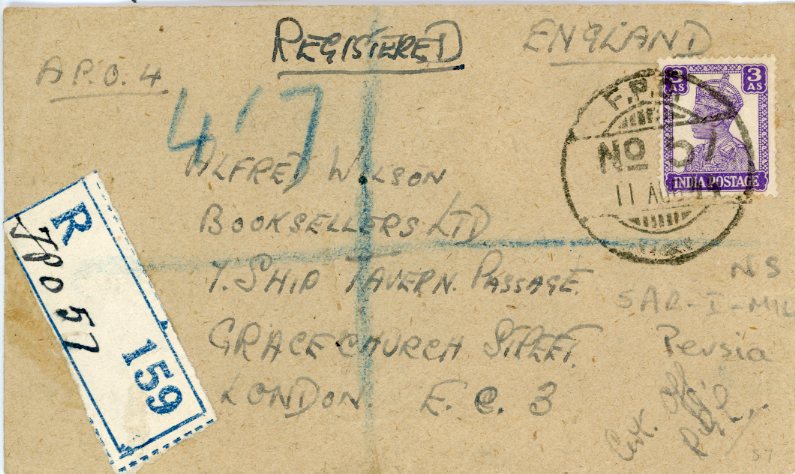 REGISTERED ENGLAND
A.P.O. 4
3 AS 3 AS
INDIA POSTAGE
F.P.O.
No 57
11 AUG
417
ALFRED WILSON
BOOKSELLERS LTD
7. SHIP TAVERN. PASSAGE.
GRACECHURCH STREET.
LONDON. E.C. 3
R
159
N S
SAR-I-MIL
Persia
57